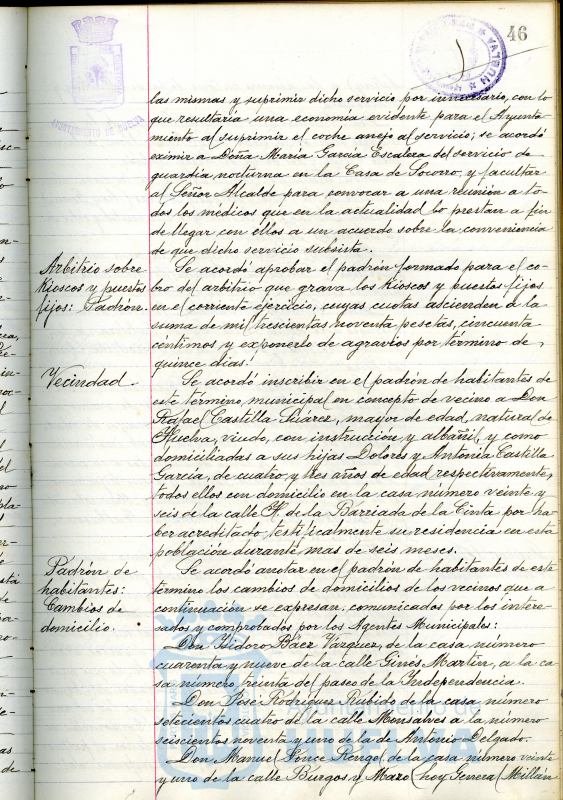 46
AYUNTAMIENTO DE HUELVA
las mismas y suprimir dicho servicio por innecesario, con lo
que resultaría una economía evidente para el Ayunta-
miento al suprimir el coche anejo al servicio; se acordó
eximir a Doña María García Escalera del servicio de
guardia nocturna en la Casa de Socorro, y facultar
al Señor Alcalde para convocar a una reunión a to-
dos los médicos que en la actualidad lo prestan a fin
de llegar con ellos a un acuerdo sobre la conveniencia
de que dicho servicio subsista.
Arbitrio sobre
kioscos y puestos
fijos: Padrón.
Se acordó aprobar el padrón formado para el co-
bro del arbitrio que grava los kioscos y puestos fijos
en el corriente ejercicio, cuyas cuotas ascienden a la
suma de mil trescientas noventa pesetas, cincuenta
céntimos y exponerlo de agravios por término de
quince dias.
Vecindad.
Se acordó inscribir en el padrón de habitantes de
este término municipal en concepto de vecino a Don
Rafael Castilla Suárez, mayor de edad, natural de
Huelva, viudo, con instrucción y albañil, y como
domiciliadas a sus hijas Dolores y Antonia Castilla
García, de cuatro y tres años de edad respectivamente,
todos ellos con domicilio en la casa número veinte y
seis de la calle F. de la Barriada de la Cinta por ha-
ber acreditado testificalmente su residencia en esta
población durante mas de seis meses.
Padrón de
habitantes:
Cambios de
domicilio.
Se acordó anotar en el padrón de habitantes de este
término los cambios de domicilios de los vecinos que a
continuación se expresan, comunicados por los intere-
sados y comprobados por los Agentes Municipales:
Don Isidoro Báez Vázquez, de la casa número
cuarenta y nueve de la calle Ginés Martín, a la ca-
sa número treinta del paseo de la Independencia.
Don José Rodríguez Rubido de la casa número
setecientos cuatro de la calle Monsalves a la número
seiscientos noventa y uno de la de Antonio Delgado.
Don Manuel Ponce Rengel de la casa número veinte
y uno de la calle Burgos y Mazo (hoy General Millán
Ayuntamiento de
HUELVA